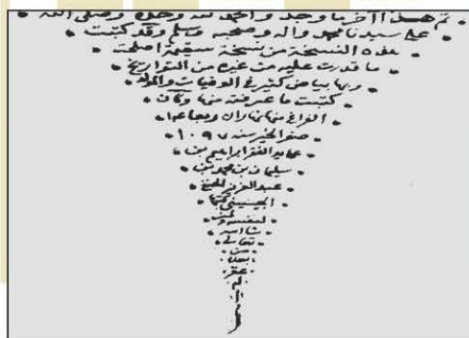 تم هذا آخر ما وجد والحمد لله وحده وصلى الله
على سيدنا محمد وآله وصحبه وسلم وقد كتبت
هذه النسخة من نسخة سقيمة اصلحت
ما قدرت عليه من غيره من التواريخ
وبها بياض كثير في الوفيات والموالد
كتبت ما عرفته منها وكان
الفراغ من
صفر الخير سنة ١٠٩٧
على يد الفقير ابراهيم بن
سليمان بن محمد بن
عبد العزيز الحنفي
الجينيني كتبها
لنفسه ولمن
شا الله
تعالى
من
بعده